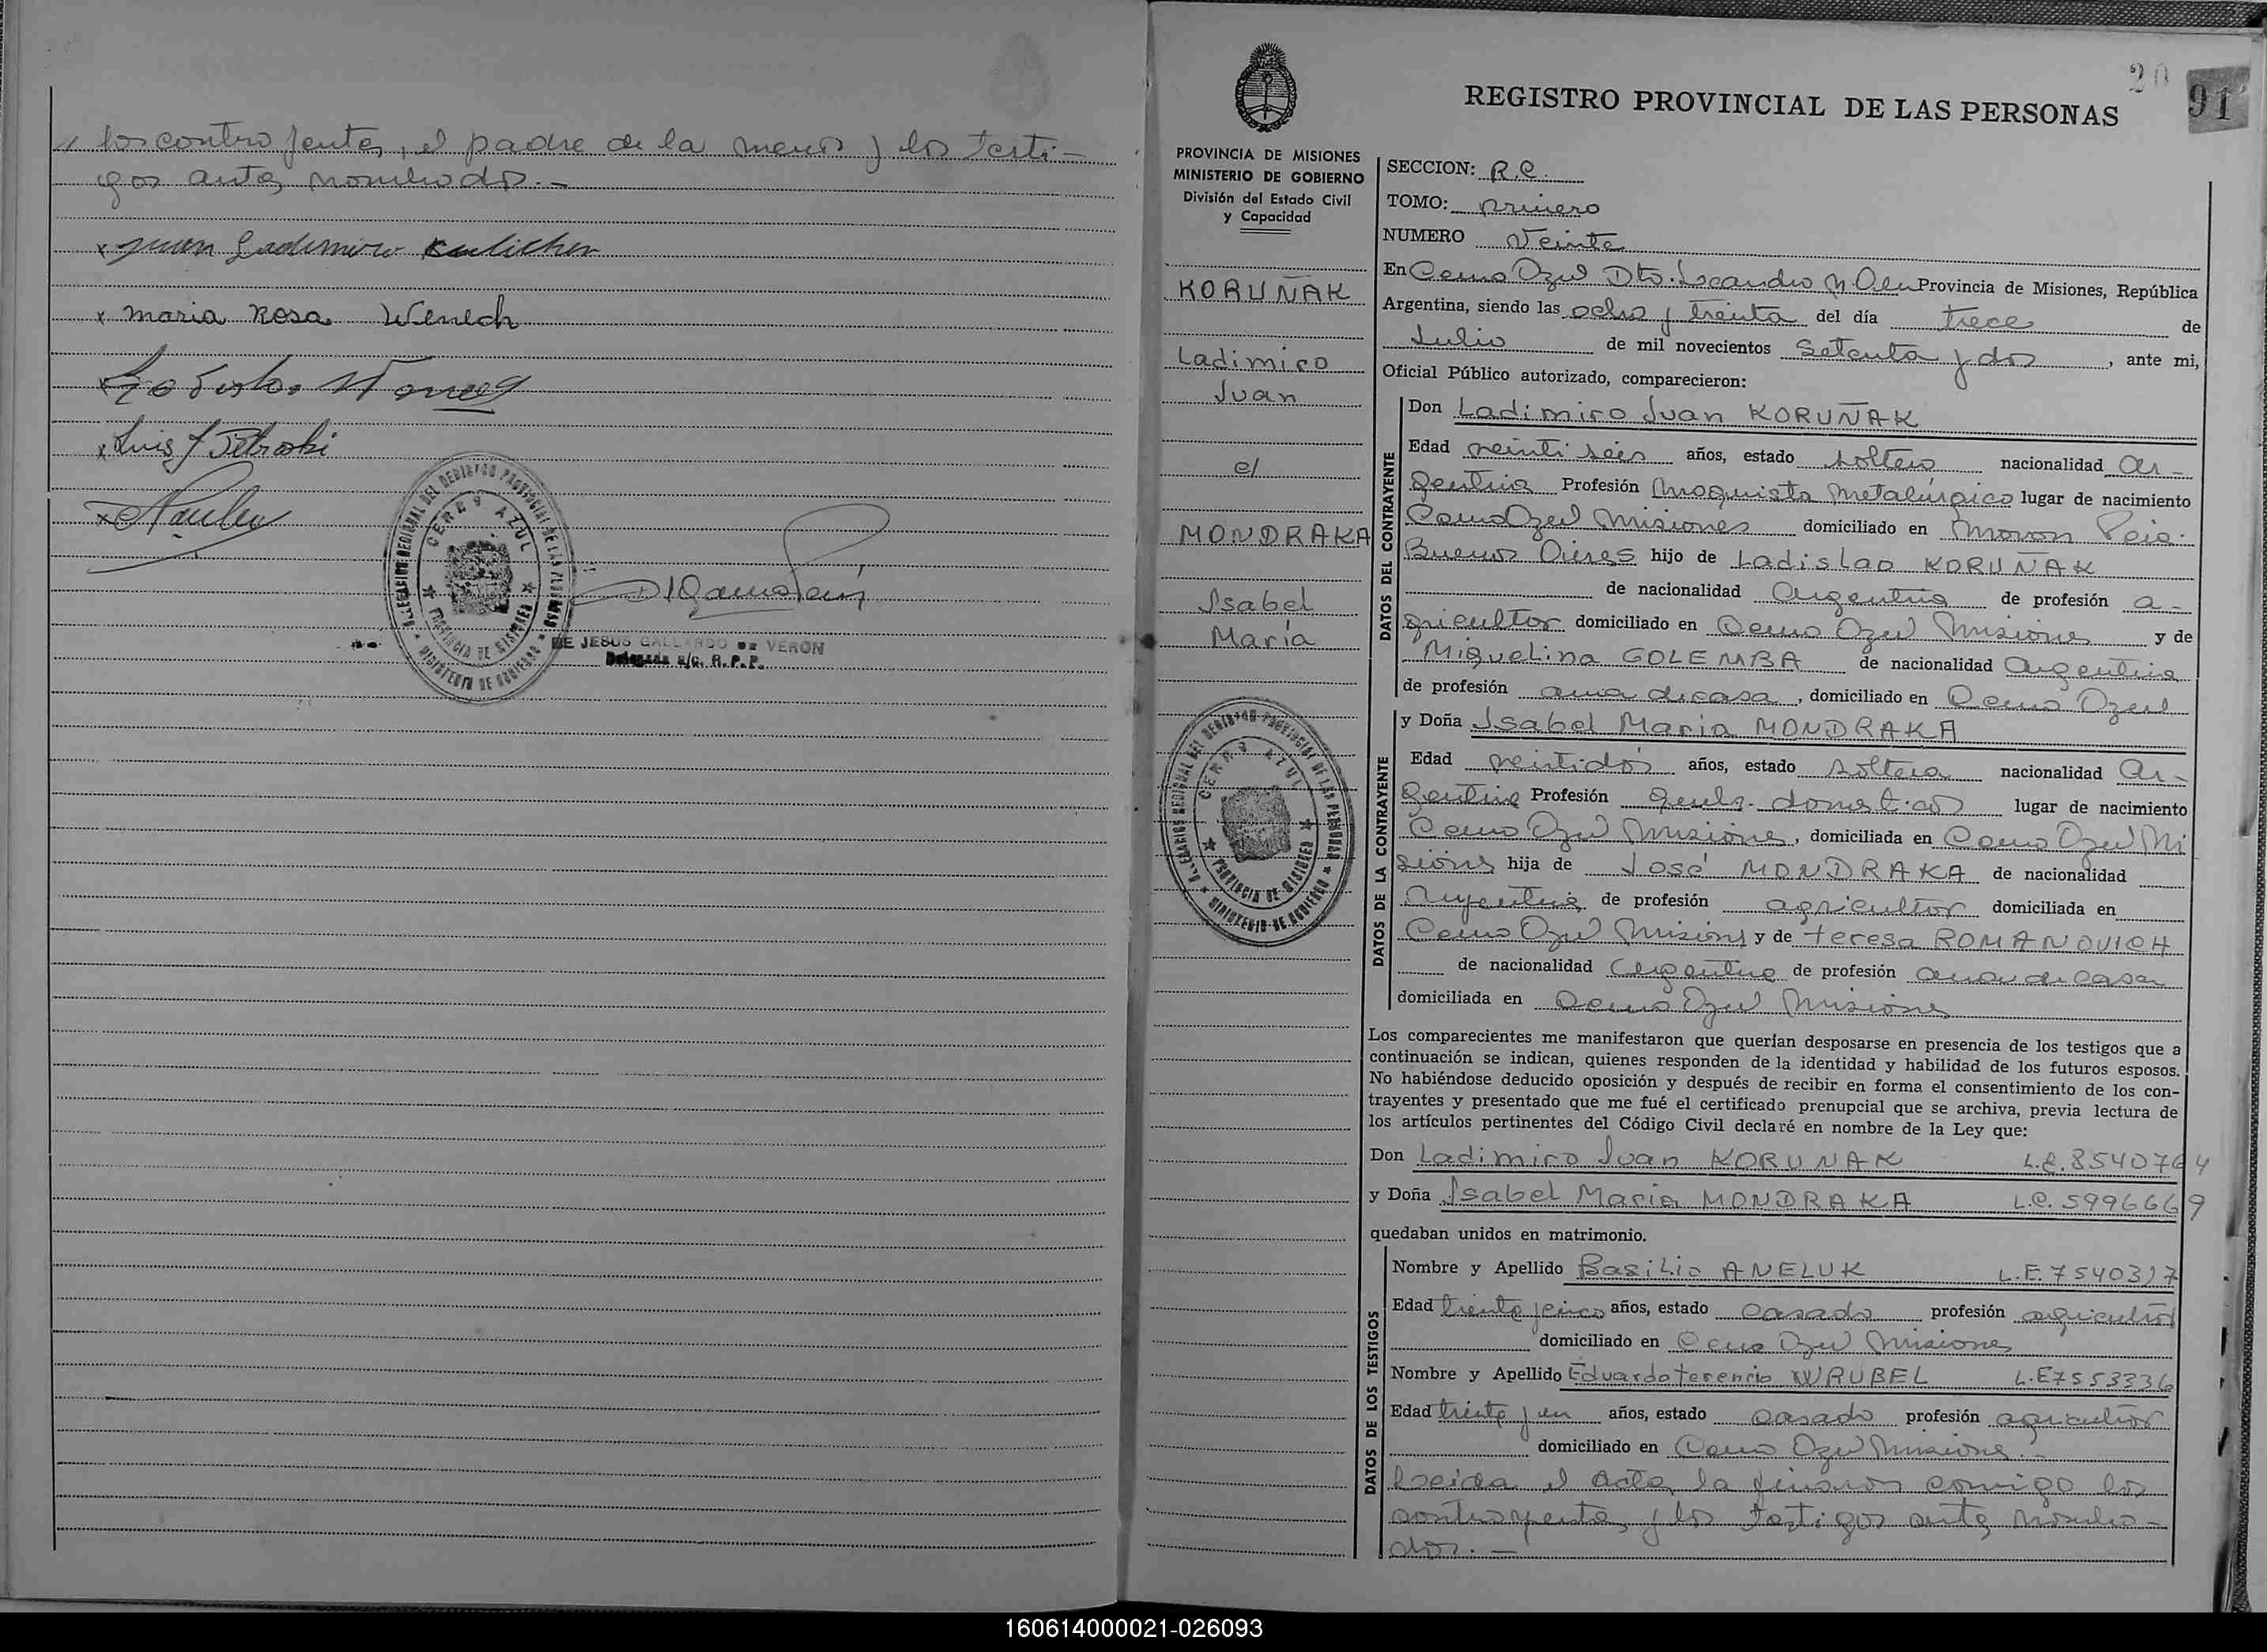 // los contrayentes, el padre de la menor y los testi-
gos antes nombrados.-
x Juan Ladimiro
x Maria Rosa Wenech
x Luis J Petroski
DELEGACION REGIONAL DEL REGISTRO PROVINCIAL DE LAS PERSONAS
CERRO AZUL
PROVINCIA DE MISIONES
MINISTERIO DE GOBIERNO
DE JESUS GALLARDO DE VERON
Delegada s/c. R.P.P.
20
91
REGISTRO PROVINCIAL DE LAS PERSONAS
PROVINCIA DE MISIONES
MINISTERIO DE GOBIERNO
División del Estado Civil
y Capacidad
KORUÑAK
Ladimiro
Juan
c/
MONDRAKA
Isabel
María
DELEGACION REGIONAL DEL REGISTRO PROVINCIAL DE LAS PERSONAS
CERRO AZUL
PROVINCIA DE MISIONES
MINISTERIO DE GOBIERNO
SECCION: R.C.
TOMO: primero
NUMERO Veinte
En Cerro Azul Dto. Leandro N. Alem Provincia de Misiones, República
Argentina, siendo las ocho y treinta del día trece de
Julio de mil novecientos Setenta y dos, ante mi,
Oficial Público autorizado, comparecieron:
DATOS DEL CONTRAYENTE
Don Ladimiro Juan KORUÑAK
Edad veinti seis años, estado soltero nacionalidad ar-
gentina Profesión Maquista Metalúrgico lugar de nacimiento
Cerro Azul Misiones domiciliado en Moron Pcia.
Buenos Aires hijo de Ladislao KORUÑAK
de nacionalidad Argentina de profesión a-
gricultor domiciliado en Cerro Azul Misiones y de
Miguelina GOLEMBA de nacionalidad argentina
de profesión ama de casa, domiciliado en Cerro Azul
DATOS DE LA CONTRAYENTE
y Doña Isabel Maria MONDRAKA
Edad veintidós años, estado soltera nacionalidad Ar-
gentina Profesión domesticos lugar de nacimiento
Cerro Azul Misiones, domiciliada en Cerro Azul Mi
siones hija de José MONDRAKA de nacionalidad
Argentina de profesión agricultor domiciliada en
Cerro Azul Misiones y de Teresa ROMANOVICH
de nacionalidad Argentina de profesión ama de casa
domiciliada en Cerro Azul Misiones
Los comparecientes me manifestaron que querían desposarse en presencia de los testigos que a
continuación se indican, quienes responden de la identidad y habilidad de los futuros esposos.
No habiéndose deducido oposición y después de recibir en forma el consentimiento de los con-
trayentes y presentado que me fué el certificado prenupcial que se archiva, previa lectura de
los artículos pertinentes del Código Civil declaré en nombre de la Ley que:
Don Ladimiro Juan KORUNAK L.E. 8540764
y Doña Isabel Maria MONDRAKA L.C. 5996669
quedaban unidos en matrimonio.
DATOS DE LOS TESTIGOS
Nombre y Apellido Basilio ANELUK L.E. 7540317
Edad treinta y cinco años, estado casado profesión agricultor
domiciliado en Cerro Azul Misiones
Nombre y Apellido Eduardo Terencio WRUBEL L.E 7553336
Edad treinta y un años, estado casado profesión agricultor
domiciliado en Cerro Azul Misiones.-
Leida el acta, la firman conmigo los
contrayentes, y los testigos antes nombra-
dos.-
160614000021-026093